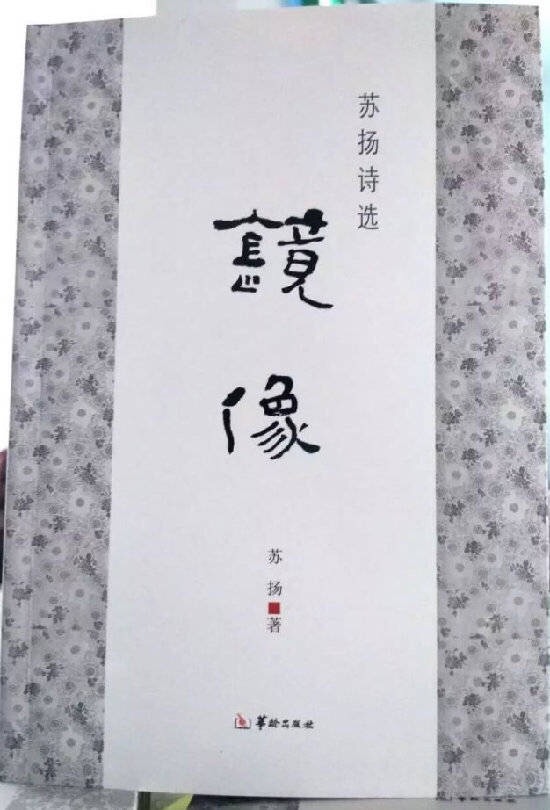 苏扬诗选
鏡像
苏扬 著
华龄出版社